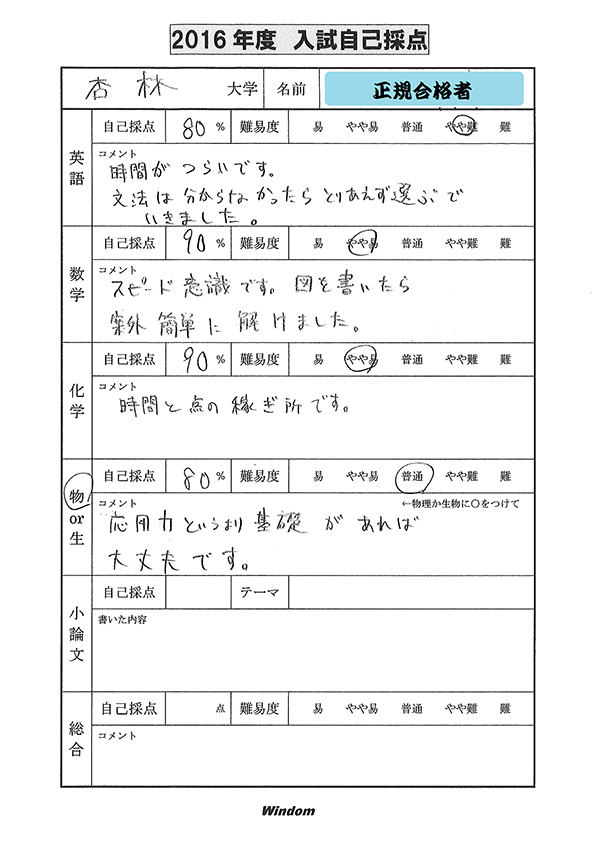 2016年度 入試自己採点
杏林 大学 名前 正規合格者
英語 自己採点 80 % 難易度 易 やや易 普通 やや難 難
コメント
時間がつらいです。
文法は分からなかったらとりあえず選ぶで
いきました。
数学 自己採点 90 % 難易度 易 やや易 普通 やや難 難
コメント
スピード意識です。図を書いたら
案外簡単に解けました。
化学 自己採点 90 % 難易度 易 やや易 普通 やや難 難
コメント
時間と点の稼ぎ所です。
物or生 自己採点 80 % 難易度 易 やや易 普通 やや難 難
コメント ←物理か生物に〇をつけて
応用力というより基礎があれば
大丈夫です。
小論文 自己採点 テーマ
書いた内容
総合 自己採点 点 難易度 易 やや易 普通 やや難 難
コメント
Windom